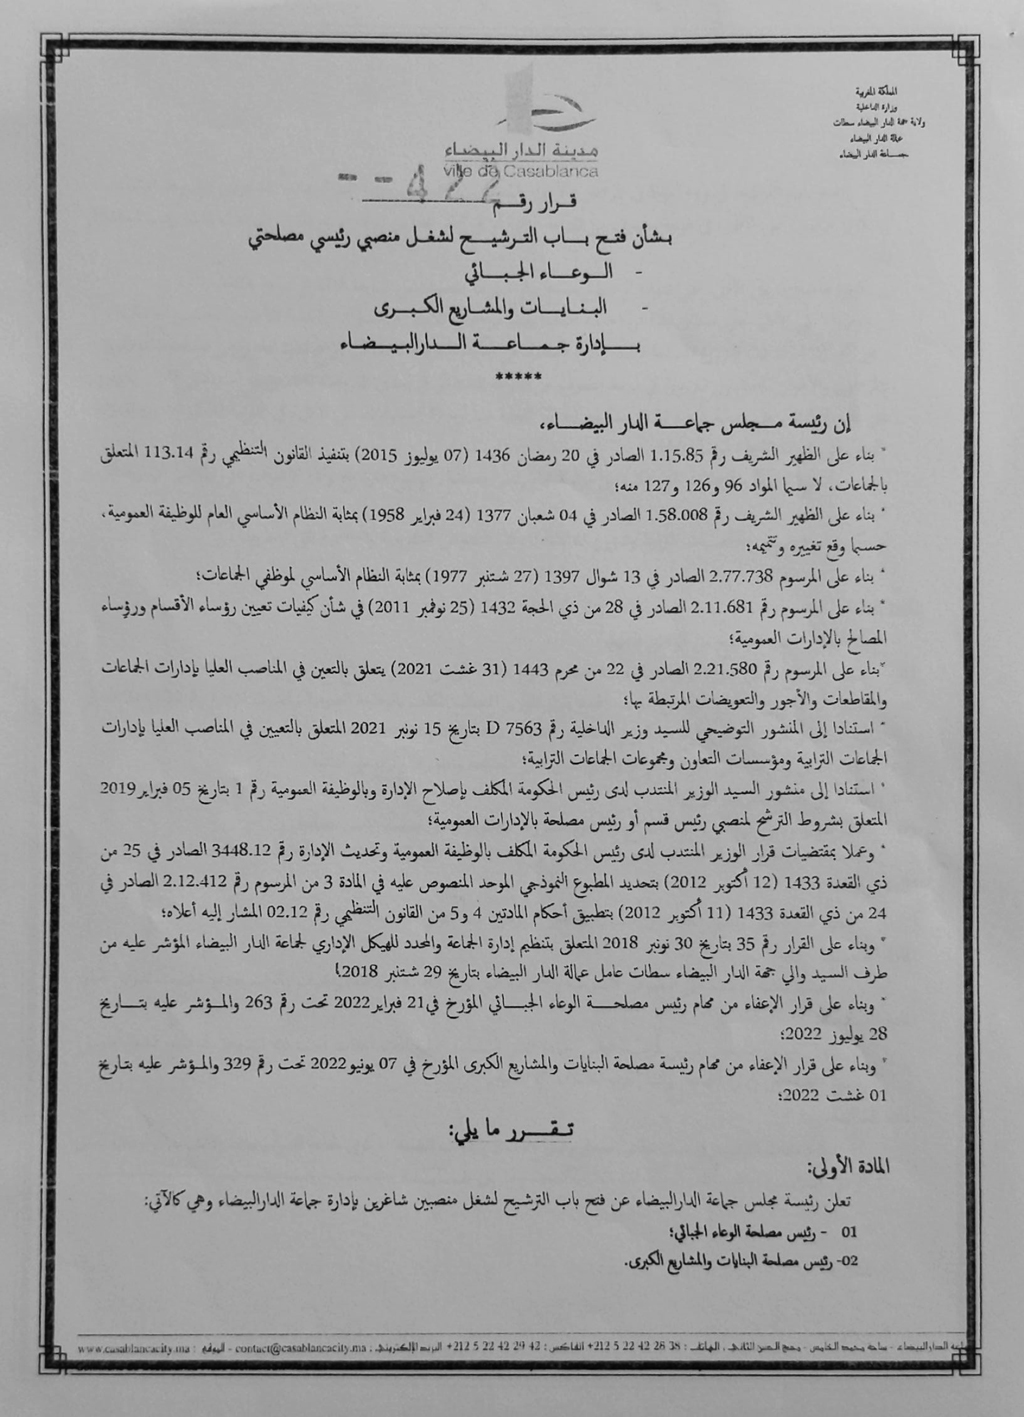 المملكة المغربية
وزارة الداخلية
ولاية جهة الدار البيضاء سطات
عمالة الدار البيضاء
جماعة الدار البيضاء
مدينة الدار البيضاء
Ville de Casablanca
قرار رقم 422--
بشأن فتح باب الترشيح لشغل منصبي رئيسي مصلحتي
- الوعاء الجبائي
- البنايات والمشاريع الكبرى
بإدارة جماعة الدارالبيضاء
*****
إن رئيسة مجلس جماعة الدار البيضاء،
* بناء على الظهير الشريف رقم 1.15.85 الصادر في 20 رمضان 1436 (07 يوليوز 2015) بتنفيذ القانون التنظيمي رقم 113.14 المتعلق
بالجماعات، لا سيما المواد 96 و126 و127 منه؛
* بناء على الظهير الشريف رقم 1.58.008 الصادر في 04 شعبان 1377 (24 فبراير 1958) بمثابة النظام الأساسي العام للوظيفة العمومية،
حسبما وقع تغييره وتتميمه؛
* بناء على المرسوم 2.77.738 الصادر في 13 شوال 1397 (27 شتنبر 1977) بمثابة النظام الأساسي لموظفي الجماعات؛
* بناء على المرسوم رقم 2.11.681 الصادر في 28 من ذي الحجة 1432 (25 نوفمبر 2011) في شأن كيفيات تعيين رؤساء الأقسام ورؤساء
المصالح بالإدارات العمومية؛
*بناء على المرسوم رقم 2.21.580 الصادر في 22 من محرم 1443 (31 غشت 2021) يتعلق بالتعين في المناصب العليا بإدارات الجماعات
والمقاطعات والأجور والتعويضات المرتبطة بها؛
* استنادا إلى المنشور التوضيحي للسيد وزير الداخلية رقم D 7563 بتاريخ 15 نونبر 2021 المتعلق بالتعيين في المناصب العليا بإدارات
الجماعات الترابية ومؤسسات التعاون ومجموعات الجماعات الترابية؛
* استنادا إلى منشور السيد الوزير المنتدب لدى رئيس الحكومة المكلف بإصلاح الإدارة وبالوظيفة العمومية رقم 1 بتاريخ 05 فبراير2019
المتعلق بشروط الترشح لمنصبي رئيس قسم أو رئيس مصلحة بالإدارات العمومية؛
* وعملا بمقتضيات قرار الوزير المنتدب لدى رئيس الحكومة المكلف بالوظيفة العمومية وتحديث الإدارة رقم 3448.12 الصادر في 25 من
ذي القعدة 1433 (12 أكتوبر 2012) بتحديد المطبوع النموذجي الموحد المنصوص عليه في المادة 3 من المرسوم رقم 2.12.412 الصادر في
24 من ذي القعدة 1433 (11 أكتوبر 2012) بتطبيق أحكام المادتين 4 و5 من القانون التنظيمي رقم 02.12 المشار إليه أعلاه؛
* وبناء على القرار رقم 35 بتاريخ 30 نونبر 2018 المتعلق بتنظيم إدارة الجماعة والمحدد للهيكل الإداري لجماعة الدار البيضاء المؤشر عليه من
طرف السيد والي جهة الدار البيضاء سطات عامل عمالة الدار البيضاء بتاريخ 29 شتنبر 2018
* وبناء على قرار الإعفاء من مهام رئيس مصلحة الوعاء الجبائي المؤرخ في21 فبراير2022 تحت رقم 263 والمؤشر عليه بتاريخ
28 يوليوز 2022؛
* وبناء على قرار الإعفاء من مهام رئيسة مصلحة البنايات والمشاريع الكبرى المؤرخ في 07 يونيو2022 تحت رقم 329 والمؤشر عليه بتاريخ
01 غشت 2022؛
تقرر ما يلي:
المادة الأولى:
تعلن رئيسة مجلس جماعة الدارالبيضاء عن فتح باب الترشيح لشغل منصبين شاغرين بإدارة جماعة الدارالبيضاء وهي كالآتي:
01 - رئيس مصلحة الوعاء الجبائي؛
02- رئيس مصلحة البنايات والمشاريع الكبرى.
الدارالبيضاء - ساحة محمد الخامس - نهج الحسن الثاني. الهاتف: 38 28 42 22 5 212+ الفاكس: 42 29 42 22 5 212+ البريد الإلكتروني: contact@casablancacity.ma - الموقع: www.casablancacity.ma